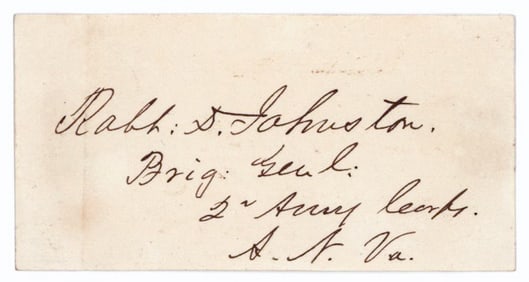 Robt: D. Johnston.
Brig: Genl:
2d Army Corps.
A. N. Va.